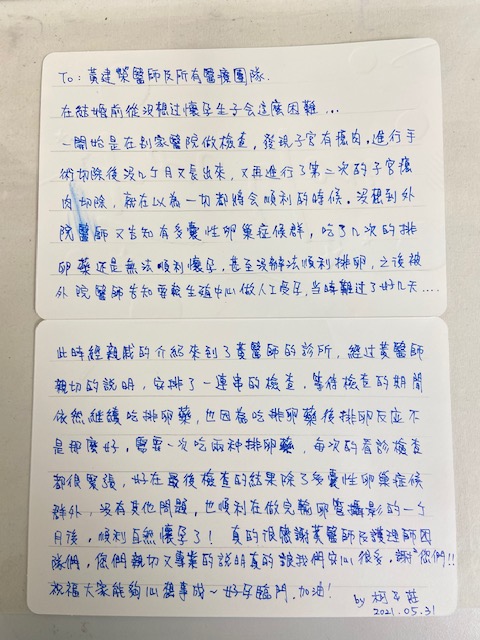 To：黃建榮醫師及所有醫療團隊.
在結婚前從沒想过懷孕生子会這麼困難...
一開始是在別家醫院做檢查，發現子宮有瘜肉，進行手
術切除後沒几个月又長出來，又再進行了第二次的子宮瘜
肉切除，就在以為一切都將会順利的時候，沒想到外
院醫師又告知有多囊性卵巢症候群，吃了几次的排
卵藥还是無法順利懷孕，甚至沒辦法順利排卵，之後被
外院醫師告知要找生殖中心做人工受孕，当時難过了好几天....
此時經親戚的介紹來到了黃醫師的診所，經过黃醫師
親切的說明，安排了一連串的檢查，等待檢查的期間
依然維護吃排卵藥，也因為吃排卵藥後排卵反应不
是那麼好，需要一次吃兩种排卵藥，每次的看診檢查
都很緊張，好在最後檢查的結果除了多囊性卵巢症候
群外，沒有其他問題，也順利在做完輸卵管攝影的一个
月後，順利自然懷孕了！真的很感謝黃醫師及護理師团
隊們，您們親切又專業的說明真的讓我們安心很多，謝謝您們!!
祝福大家能夠心想事成～好孕臨門.加油!
by 柯
2021.05.31